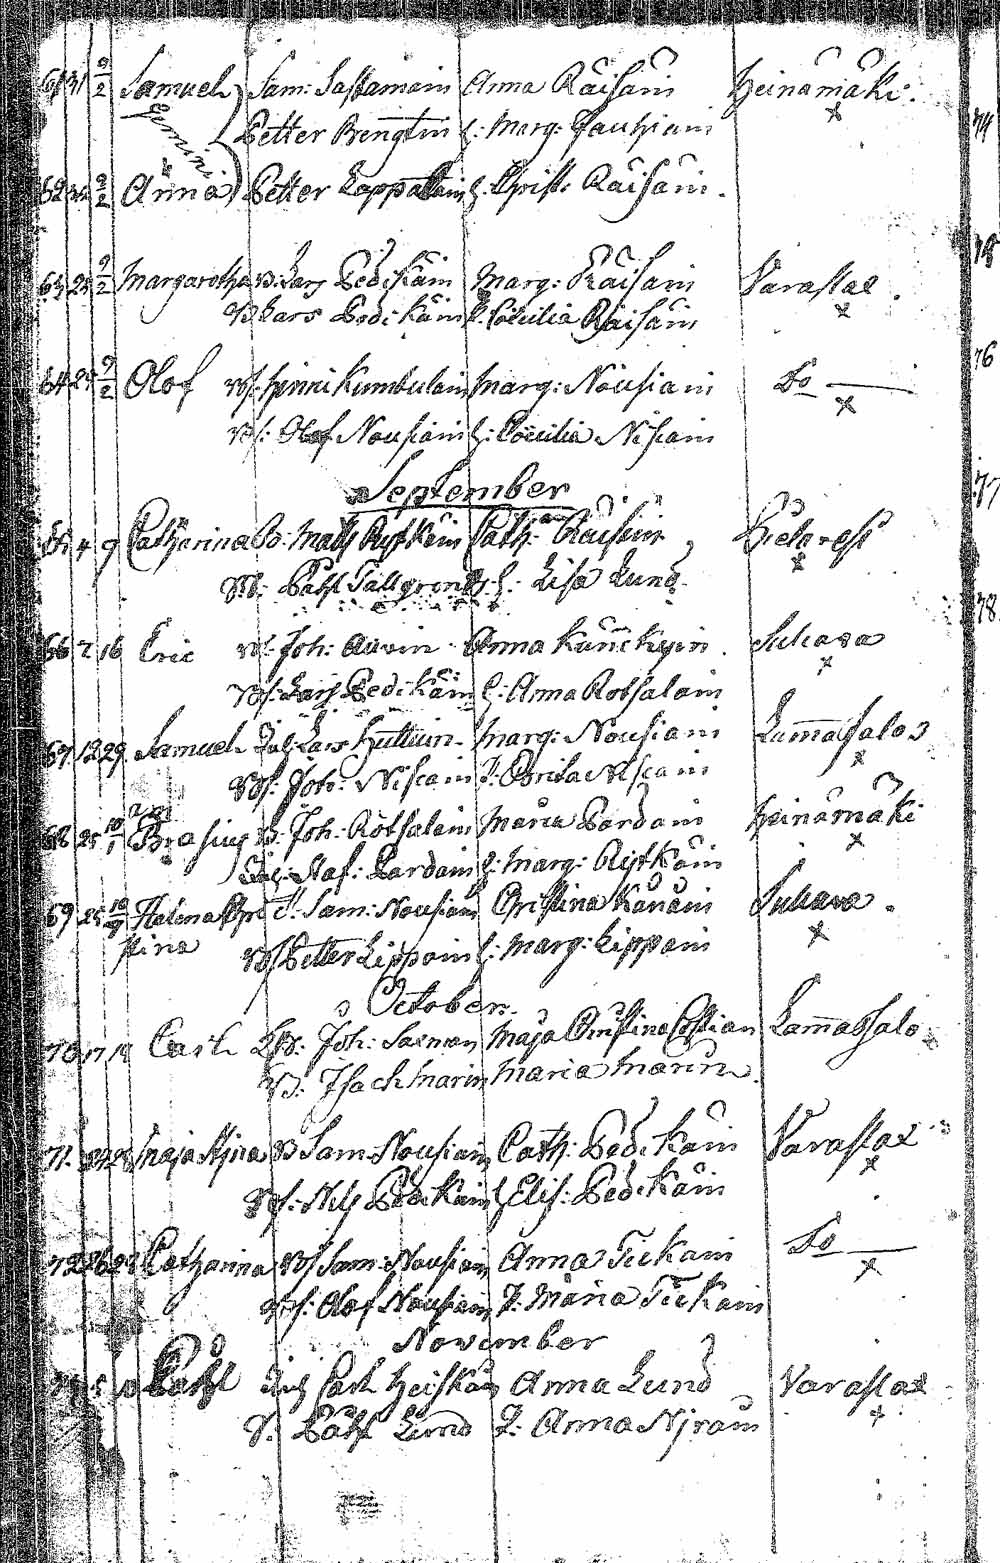 61 31 9/2 Samuel Sam: Sastamoin Anna Räisäin Heinämäki.
Gemini Petter Bengtin h: Marg:
62 9/2 Anna Petter Lappalain h: Christ: Räisäin.
63 25 9/2 Margaretha B: Lars Pedikäin Marg: Räisäin Varastax.
B Lars Pedikäin h. Coecilia Räisäin
64 25 9/2 Olof Bs: Hinni Kumbulain Marg: Nousiain Do
Bs: Olof Nousiain h: Coecilia Niscain
September
65 4 9 Catharina Bo: Matts Rytkäin Cath: Räisäin
Påhl Tallgren h: Lisa Lund
66 7 16 Eric Bs: Joh: Auvin Anna Sukava
Bs: Lars Pedikäin h: Anna Rotsalain
67 12 29 Samuel Inh: Lars Huttuin Marg: Nousiain Lammasalo
Bs: Joh: Niscain P: Brita Niscain
68 25 10/1 Brasius B: Joh: Rotsalain Maria Pardain Heinämäki
Inh: Staf: Pardain h: Marg: Rytkäin
69 25 10/ Helena Chri D: Sam: Nousiain Christina Kanäin Sukava.
stina Bs Petter Lippoin h: Marg: Lippoin
October.
70 17 19 Carl Joh: Saxman Maja Christina Costian Lammassalo
B: Isach Marin Maria Marin.
71. 28 Maja Stina B Sam: Nousiain Cath: Pedikäin Varastax
Bs: Nils Pedikäin h Elis: Pedikäin
72 26 Catharina Bs Sam: Nousiain Anna Tickain Do
Bs: Olof Nousiain P: Maria Tickain
November
5 10 Påhl Inh Carl Heiskäin Anna Lund Varastax
D: Påhl Lund P: Anna